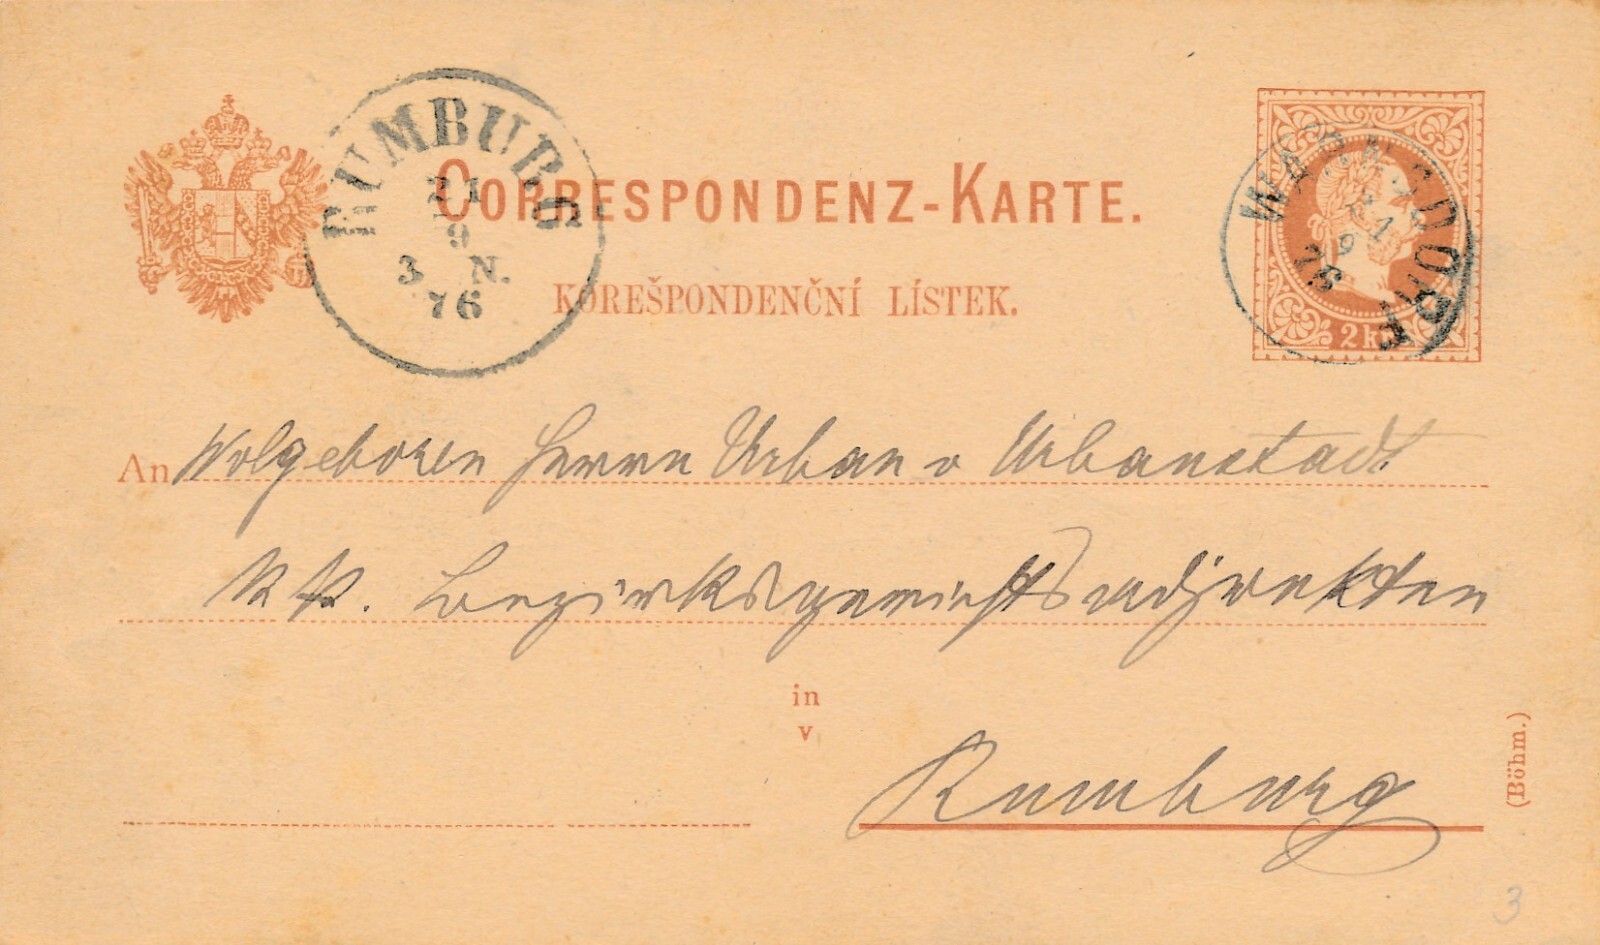 RUMBURG
21
9
3 N.
76
CORRESPONDENZ-KARTE.
KOREŠPONDENČNÍ LÍSTEK.
WARNSDORF
21
9
76
2 kr.
An Wolgeboren Herrn Urban v Urbanstadt
K. K. Bezirksgerichtsadjunkten
in
v
Rumburg
(Böhm.)
3